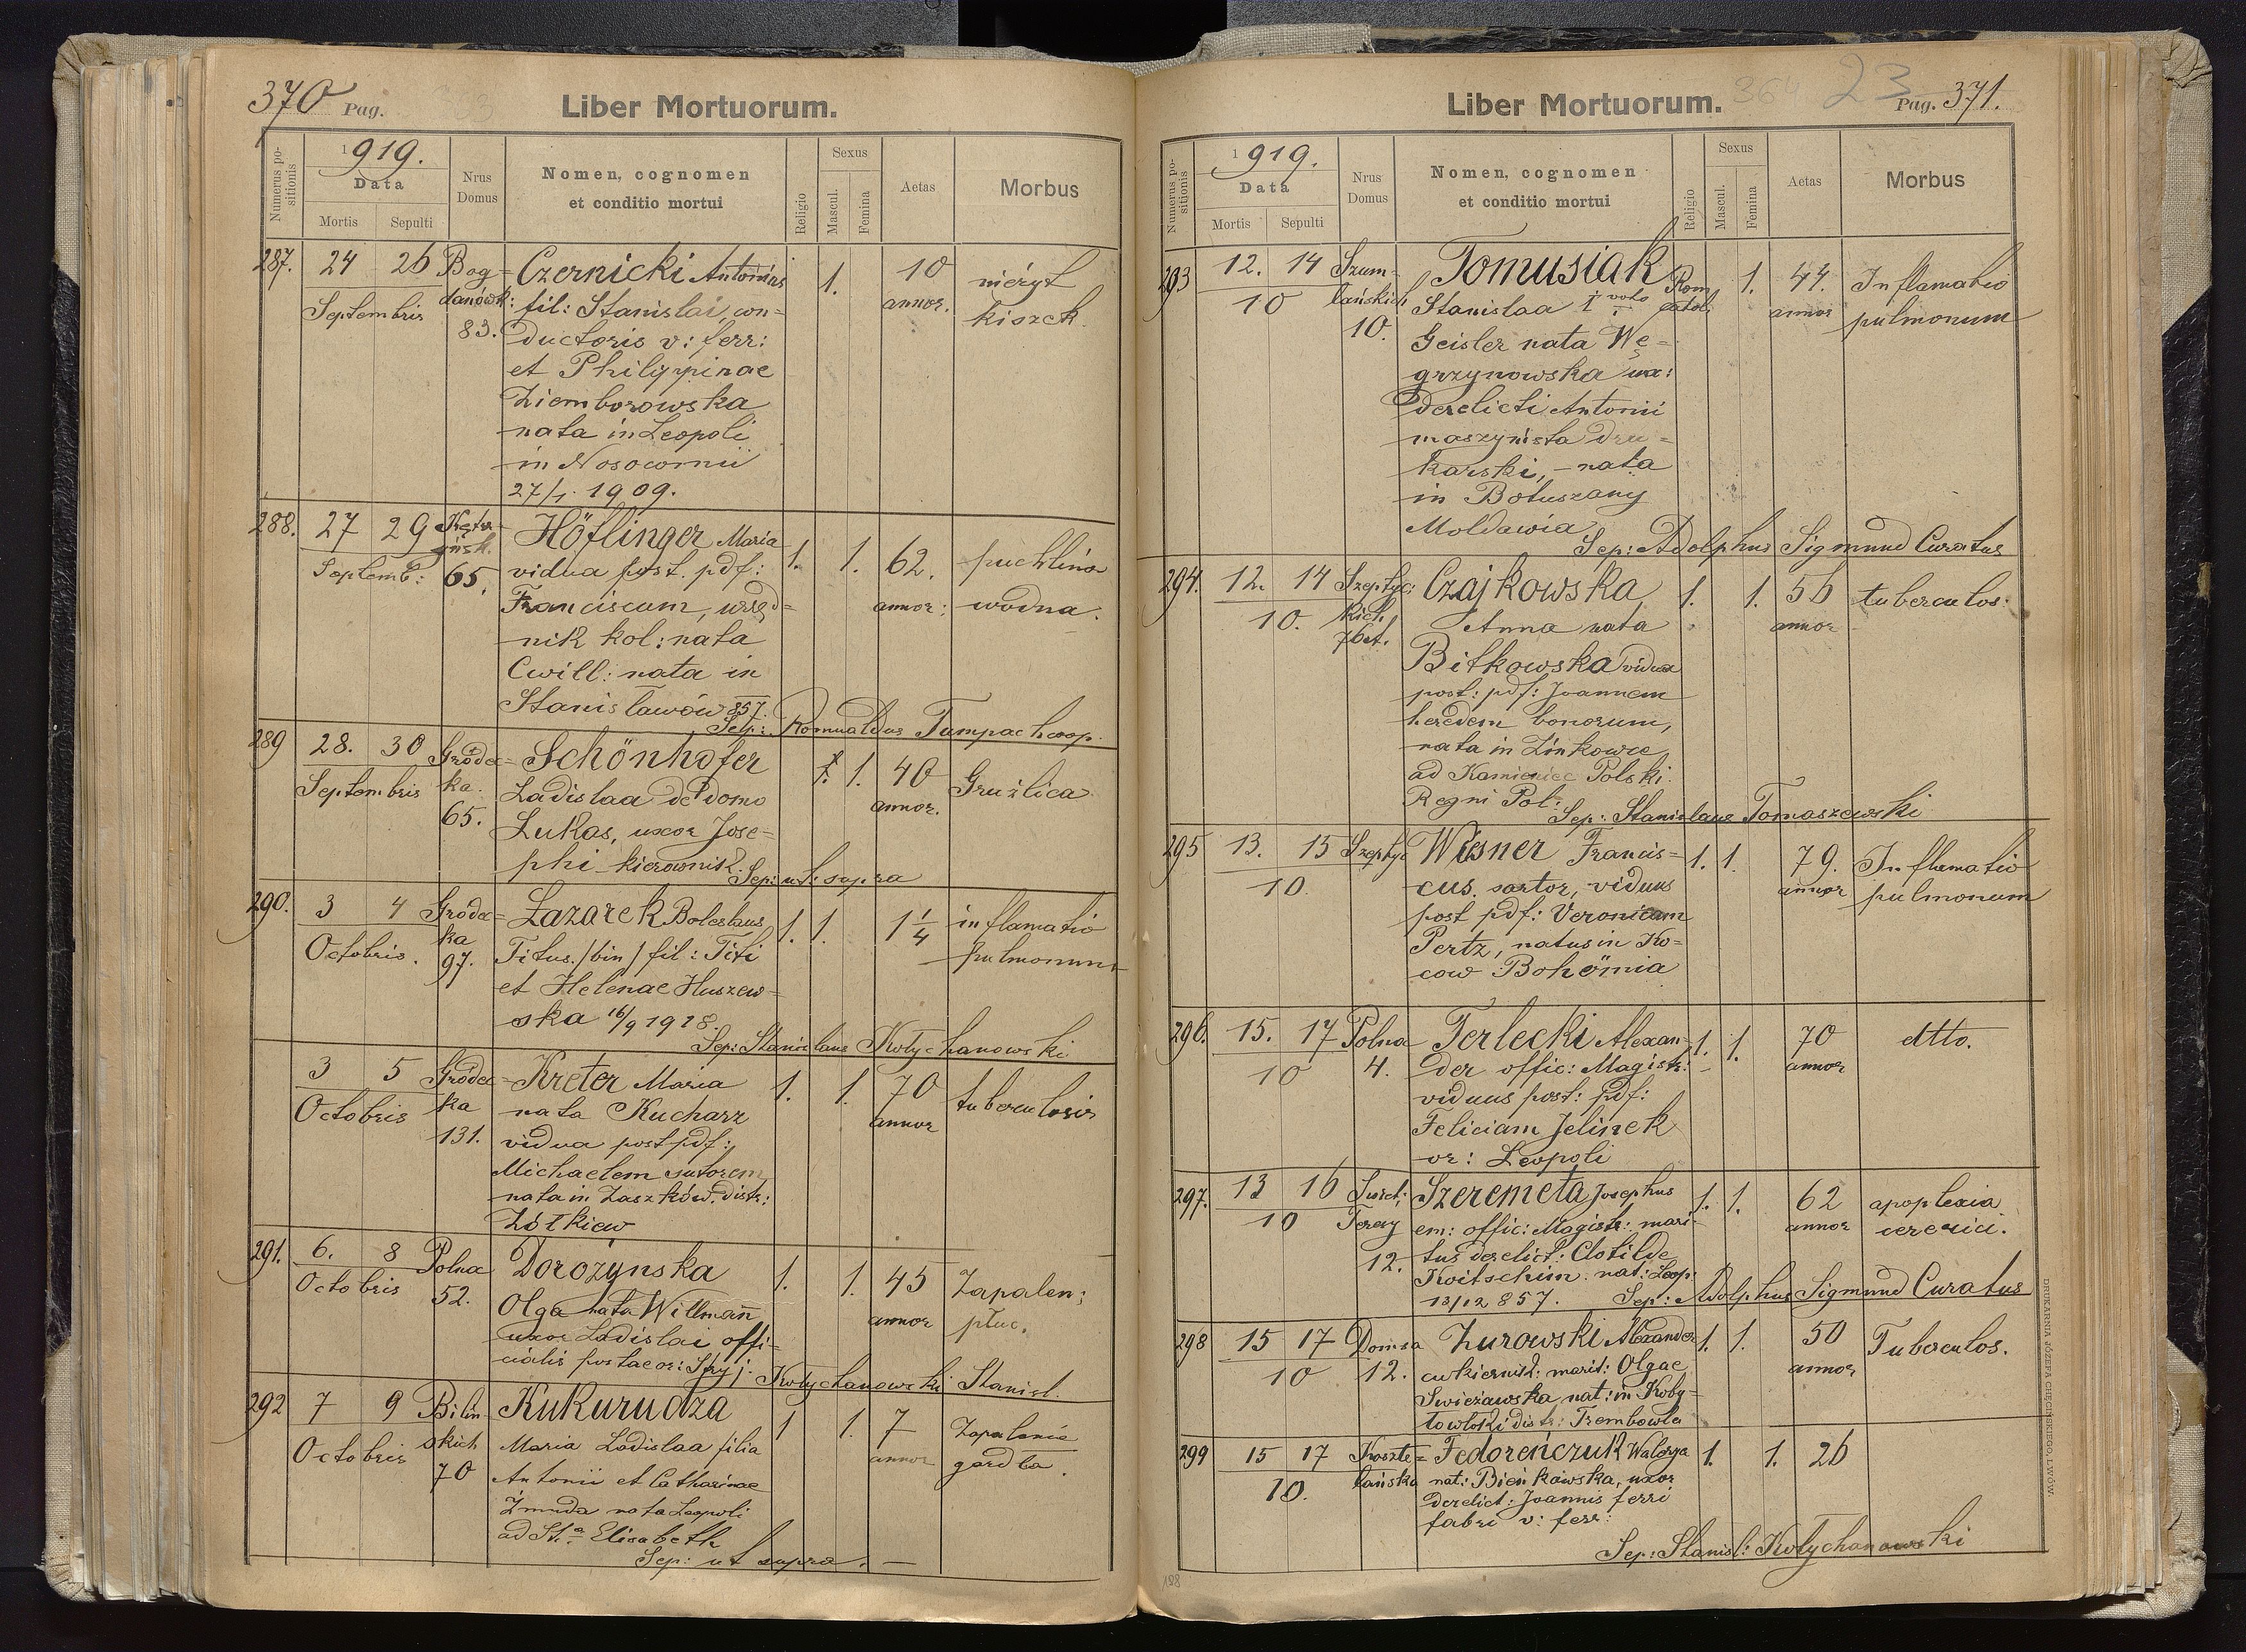 370 Pag.
Liber Mortuorum.
Numerus positionis
1919.
Data
Mortis
Sepulti
Nrus Domus
Nomen, cognomen
et conditio mortui
Religio
Sexus
Mascul.
Femina
Aetas
Morbus
287. 24 26 Bog= Czernicki Antonius 1. 10 nieżyt
Septembris danówk: fil: Stanislai, con= annor. kiszek
83. ductoris v: ferr:
et Philippinae
Ziemborowska
nata in Leopoli
in Nosocomii
27/1. 1909.
288. 27 29 Höflinger Maria 1. 1. 62. puchlina
Septemb: 65. vidua post. pdf: annor: wodna.
Franciscum, urzęd=
nik kol: nata
Cwill: nata in
Stanisławów 857.
Sep: Romualdus Tumpach coop.
289 28. 30 Gródec= Schönhofer 1. 1. 40 Gruźlica
Septembris ka. Ladislaa de domo annor.
65. Lukas, uxor Jose=
phi kierownik.
Sep: ut supra
290. 3 4 Grodec= Łazarek Boleslaus 1. 1. 1 1/4 inflamatio
Octobris. ka Titus. /bin/ fil: Titi pulmonum
97. et Helenae Huszew=
ska 16/9 1918.
Sep: Stanislaus Kotychanowski
3 5 Gródec= Kreter Maria 1. 1. 70 tuberculosis
Octobris ka nata Kucharz annor
131. vidua post pdf:
Michaelem sutorem
nata in Zaszków. distr:
Żółkiew
291. 6. 8 Polna Dorożynska 1. 1. 45 Zapalen:
Octobris 52. Olga nata Willmann annor płuc.
uxor Ladislai offi=
cialis postae or: Stryj.
Kotychanowski Stanisl.
292 7 9 Bilin Kukurudza 1 1. 7 Zapalenie
Octobris skich Maria Ladislaa filia annor gardła.
70 Antonii et Catharinae
Żmuda nata Leopoli
ad St.a Elisabeth
Sep: ut supra. —
364 23
Pag. 371.
Liber Mortuorum.
Numerus positionis
1919.
Data
Mortis
Sepulti
Nrus Domus
Nomen, cognomen
et conditio mortui
Religio
Sexus
Mascul.
Femina
Aetas
Morbus
293 12. 14 Szum= Tomusiak Rom 1. 44. Inflamatio
10 lańskich Stanislaa I voto catol. annor pulmonum
10. Geisler nata Wę=
grzynowska ux:
derelicti Antonii
maszynista dru=
karski, – nata
in Botuszany
Moldawia
Sep: Adolphus Sigmund Curatus
294. 12. 14 Szeptyc: Czajkowska 1. 1. 56 tuberculos:
10. kich. Anna nata annor
Bitkowska vidua
post: pdf: Joannem
heredem bonorum,
nata in Zinkowce
ad Kamieniec Polski.
Regni Pol:
Sep: Stanislaus Tomaszewski
295 13. 15 Szeptyc Wisner Francis= 1. 1. 79. Inflamatio
10. cus. sartor, viduus annor pulmonum
post pdf: Veronicam
Pertz, natus in Ko=
cow Bohömia
296. 15. 17 Polna Terlecki Alexan= 1. 1. 70 dtto.
10 4. der offic: Magistr: annor
viduus post: pdf:
Feliciam Jelinek
or: Leopoli
297. 13 16 Szeremeta Josephus 1. 1. 62 apoplexia
10 Teresy em: offic: Magistr: mari= annor
12. tus derelict: Clotilde
Koitschim. nat: Leop:
13/12 857. Sep: Adolphus Sigmund Curatus
298 15 17 Domsa Żurowski Alexander 1. 1. 50 Tuberculos.
10 12. cukiernik: marit: Olgae annor
Swieżawska nat: in Koby=
towłoki distr: Trembowla
299 15 17 Koszte= Fedorenczuk Walerya 1. 1. 26
10. lańska nat: Bieńkowska, uxor
derelict: Joannis ferri
fabri v: ferr:
Sep: Stanisl: Kotychanowski
DRUKARNIA JÓZEFA CHĘCIŃSKIEGO, LWÓW
188